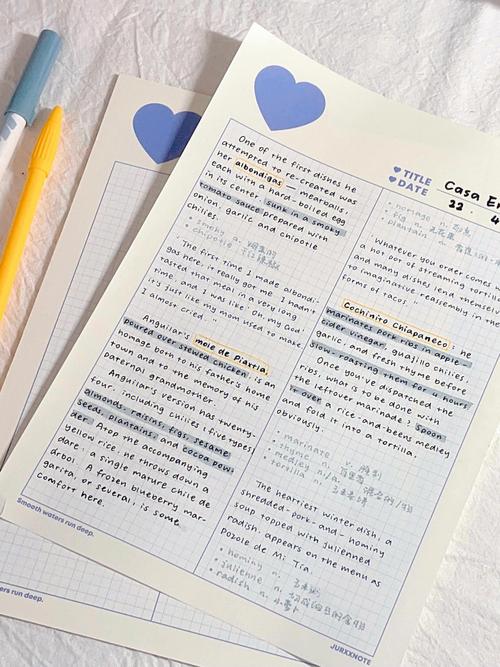 TITLE
DATE
Casa
22
One of the first dishes he
attempted to re-created was
her albondigas - meatballs,
each with a hard-boiled egg
in its center, sunk in a smoky
tomato sauce prepared with
onion, garlic and chipotle
chilies.
• smoky a. 烟熏的
• chipotle n.
The first time I made albondi-
gas here, it really got me. I hadn't
tasted that meal in a very long
time, and I was like: Oh, my God
It's just like my mom used to make
I almost cried."
Anguilar's mole de Piaxtla,
poured over stewed chicken, is an
homage both to his father's home
town and to the memory of his
paternal grandmother.
Anguilar's version has twenty-
four, including chilies (five types
almonds, raisins, figs, sesame
seeds, plantains, and cocoa pow-
der. Atop the accompanying
yellow rice, he throws down a
dare: a single mature chile de
árbol. A frozen blueberry mar-
garita, or several, is some
comfort here.
• homage n.
• fig n. 无花果
• plantain n.
Whatever you order comes
a hot pot of streaming tortil
and many dishes lend themselve
to imaginative reassembly in the
forms of tacos."
Cochinito Chiapaneco, he
marinates pork ribs in apple-
cider vinegar, guajillo chilies,
garlic, and fresh thyme before
slow-roasting them for 4 hours
Once you've dispatched the
ribs, what is to be done with
the leftover marinade? Spoon
it over a rice-and-beans medley
and fold it into a tortilla,
obviously.
• marinate v. 腌制
• thyme n.
• medley n./a.
• tortilla n.
The heartiest winter dish, a
shredded-pork-and-hominy
soup topped with julienned
radish, appears on the menu as
Pozole de Mi Tía.
• hominy n.
• julienne n.
• radish n. 小萝卜
Smooth waters run deep.
JURXXNOTE
ers run deep.